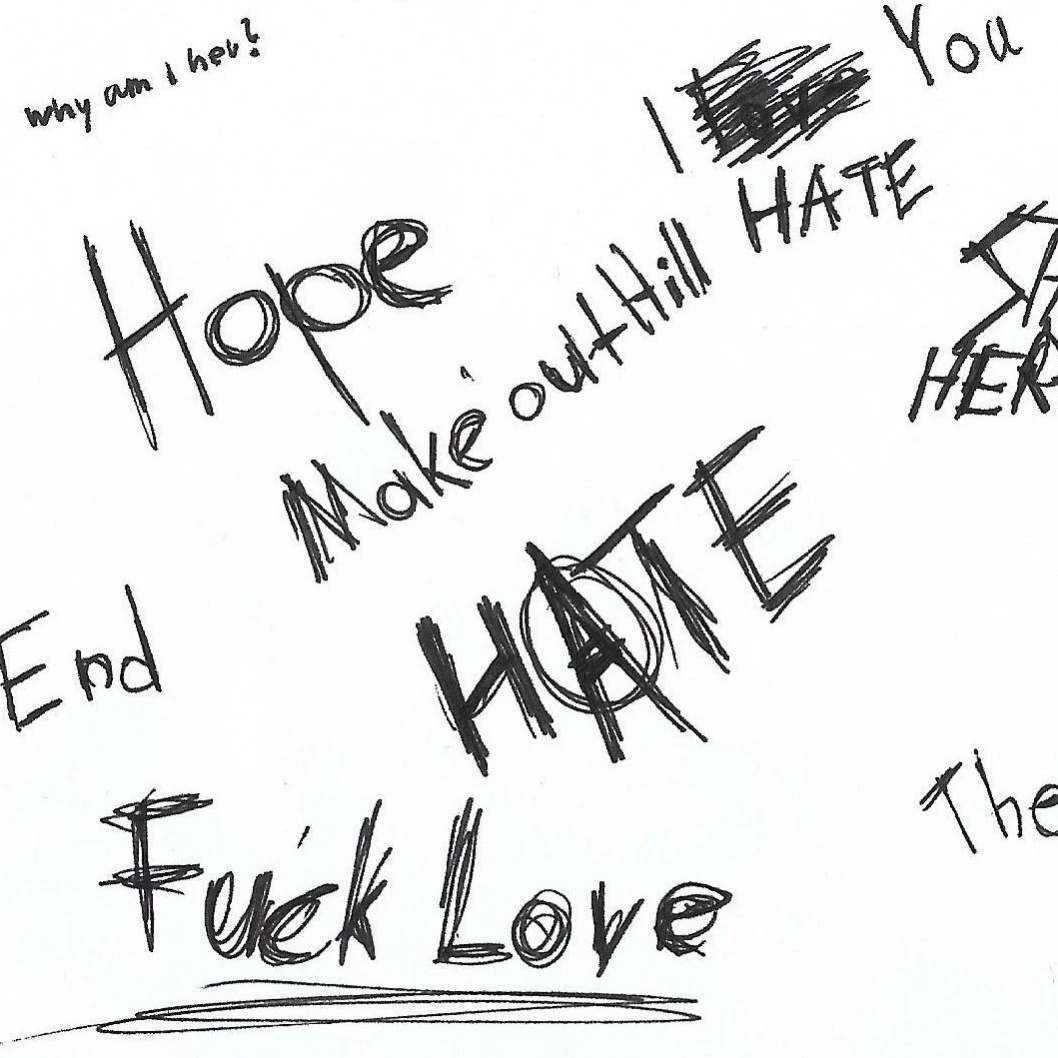 why am I her?
I Love You
HATE
Hope
Make out Hill
HER
HATE
End
The
Fuck Love